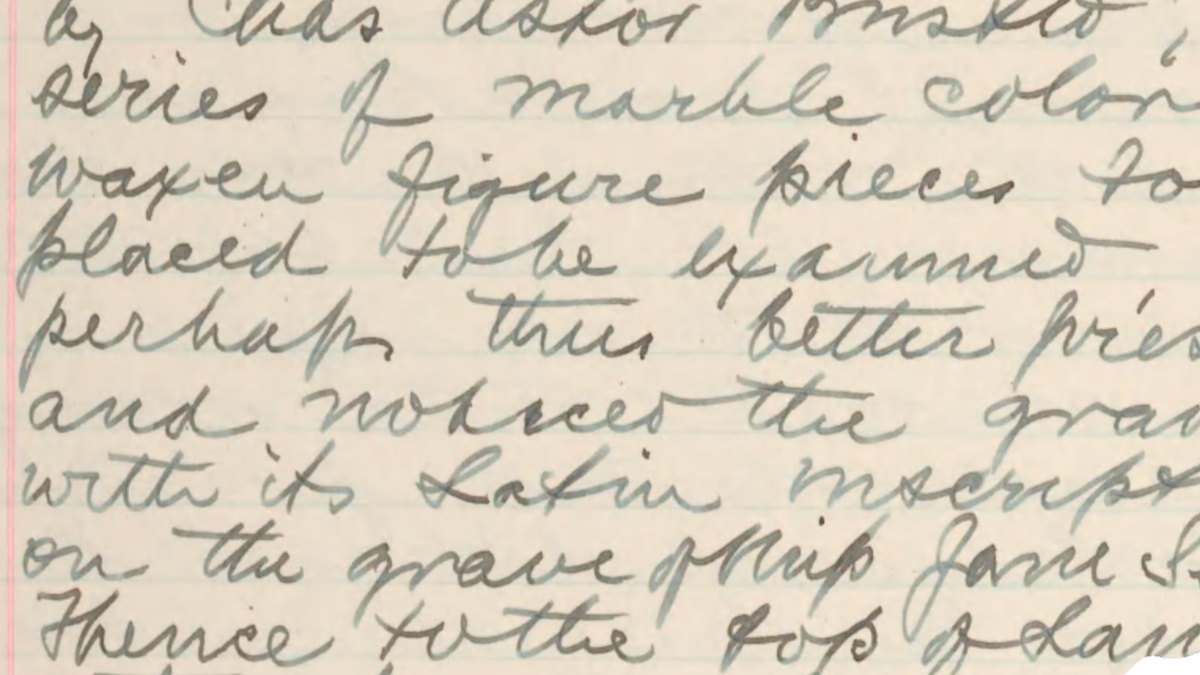 by Chas Astor Bristed,
series of marble colon
waxen figure pieces to
placed to be examined
perhaps thus better pres
and noticed the grav
with its Latin inscript
on the grave of Jane S
Thence to the top of Lau